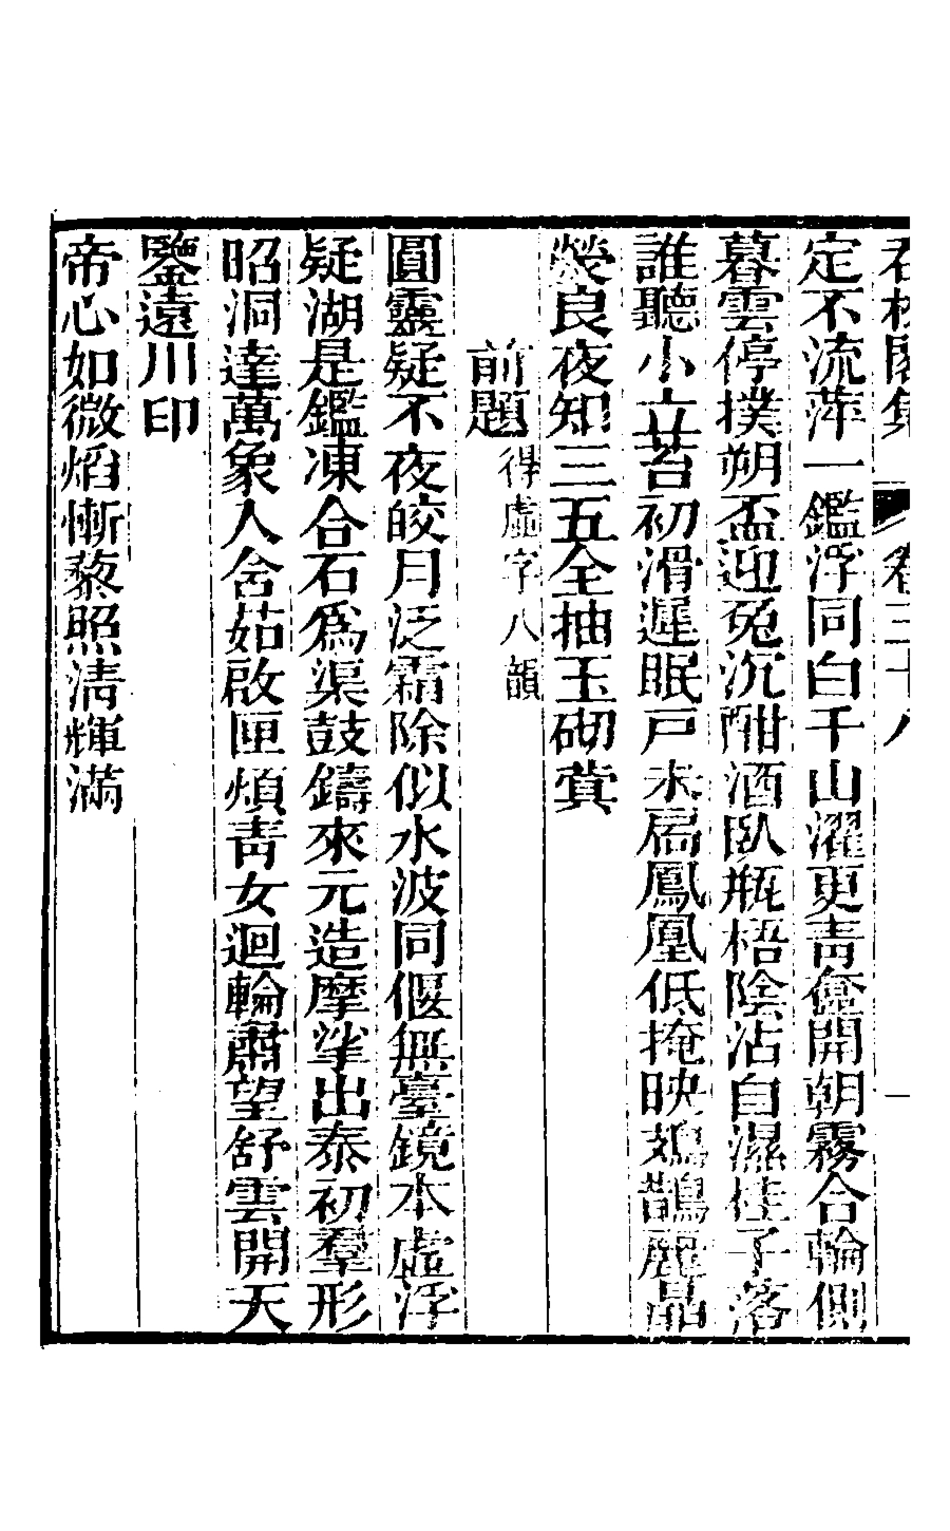 卷三十八
定不流萍一鑑浮同白千山濯更青奩開朝霧合輪側
暮雲停撲朔盃迎兔沉酣酒臥瓶梧陰沾自濕桂子落
誰聽小立苔初滑遲眠戸未扃鳳凰低掩映鳷鵲麗晶
熒良夜知三五全抽玉砌蓂
前題得虛字八韻
圓靈疑不夜皎月泛霜除似水波同偃無臺鏡本虛浮
疑湖是鑑凍合石爲渠鼓鑄來元造摩挲出泰初羣形
昭洞達萬象人舍茹啟匣煩青女迴輪肅望舒雲開天
鑒遠川印
帝心如微焰慚藜照清輝滿